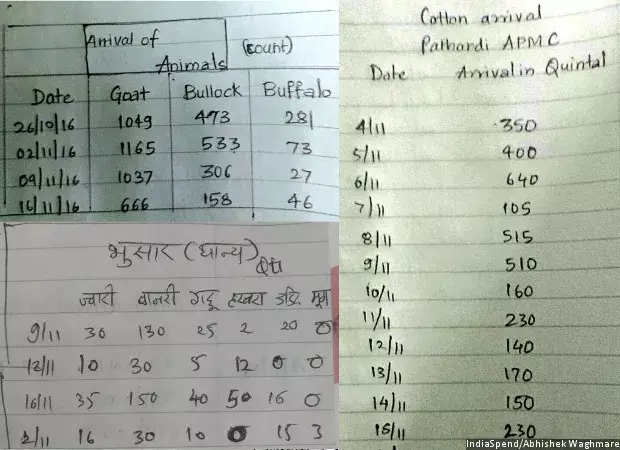 Arrival of (count)
Animals
Date Goat Bullock Buffalo
26/10/16 1049 473 281
02/11/16 1165 533 73
09/11/16 1037 306 27
16/11/16 666 158 46
भुसार (धान्य) Qtl
ज्वारी बाजरी गहू हरबरा उडि. मूग
9/11 30 130 25 2 20 0
13/11 10 30 5 12 0 0
16/11 35 150 40 50 16 0
2/11 16 30 10 0 15 3
Cotton arrival
Pathardi APMC
Date Arrival in Quintal
4/11 350
5/11 400
6/11 640
7/11 105
8/11 515
9/11 510
10/11 160
11/11 230
12/11 140
13/11 170
14/11 150
15/11 230
IndiaSpend/Abhishek Waghmare